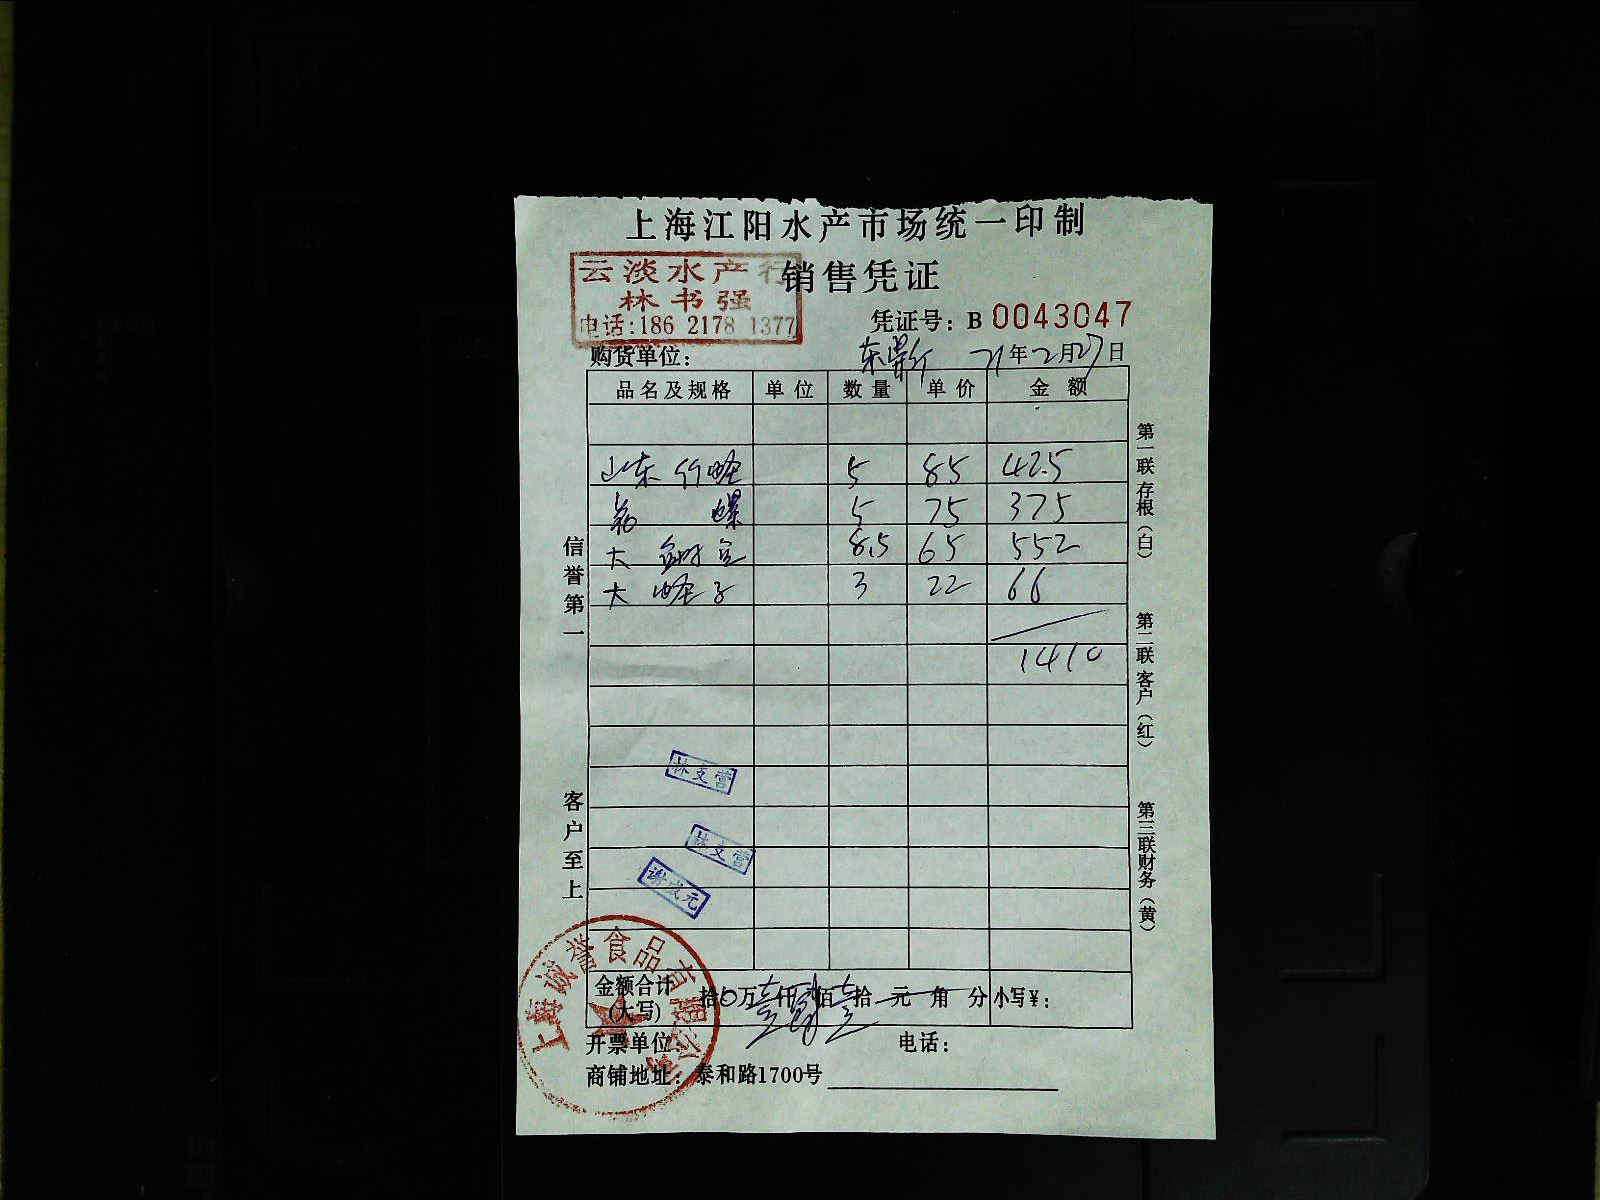 上海江阳水产市场统一印制
销售凭证
云淡水产行
林书强
电话:186 2178 1377
凭证号: B 0043047
购货单位:
21年2月27日
品名及规格 单位 数量 单价 金额
山东竹蛏 5 85 425
螺 5 75 375
大 8.5 65 552
大蛏子 3 22 66
1410
信誉第一
客户至上
第一联存根(白)
第二联客户(红)
第三联财务(黄)
林文营
林文营
谢成元
上海誠誉食品有限公司
金额合计(大写) 拾0万壹仟肆佰壹拾元角分 小写¥:
开票单位: 电话:
商铺地址: 泰和路1700号